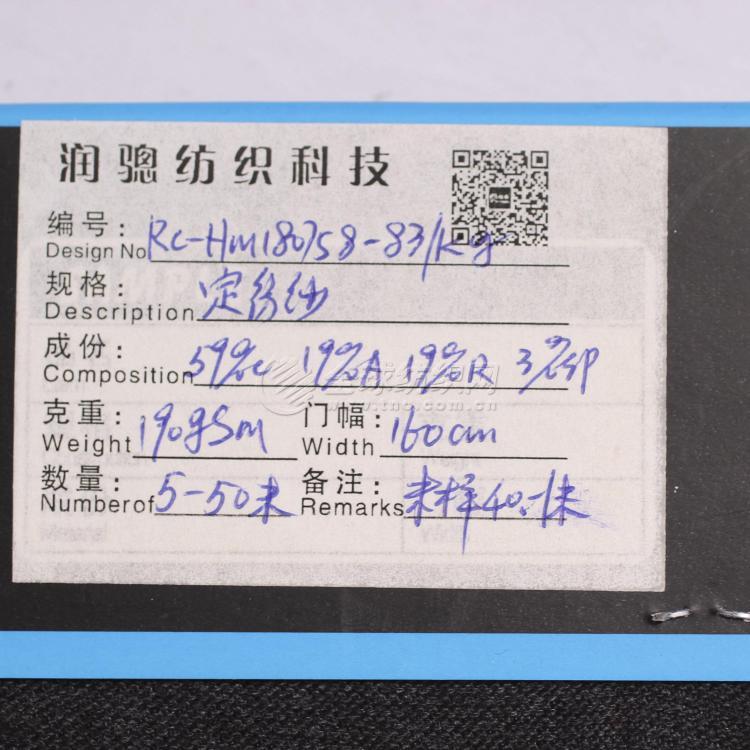 润骢纺织科技
编号: RC-HM180758-83/kg
Design No
规格: 定纺纱
Description
成份: 59%C 19%A 19%R 3%SP
Composition
全球纺织网
www.tnc.com.cn
克重: 190gsm 门幅: 160cm
Weight Width
数量: 5-50米 备注: 来样40.-1米
Numberof Remarks